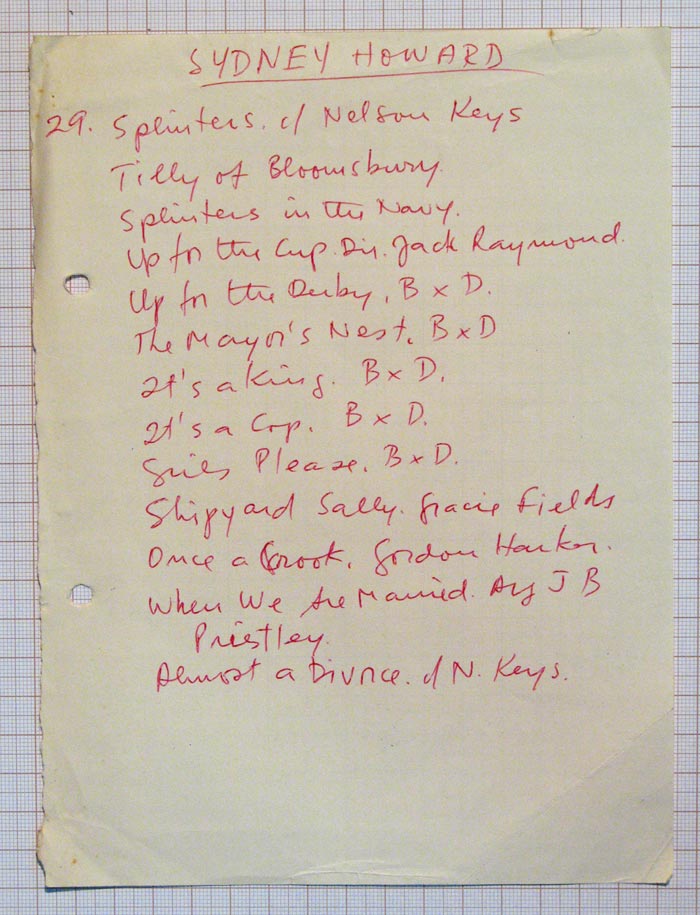 SYDNEY HOWARD
29. Splinters. c/ Nelson Keys
Tilly of Bloomsbury.
Splinters in the Navy.
Up for the Cup. Dir. Jack Raymond.
Up for the Derby. B x D.
The Mayor's Nest. B x D
It's a King. B x D.
It's a Cop. B x D.
Girls Please. B x D.
Shipyard Sally. Gracie Fields
Once a Crook. Gordon Harker.
When We Are Married. J B
Priestley.
Almost a Divorce. c/ N. Keys.